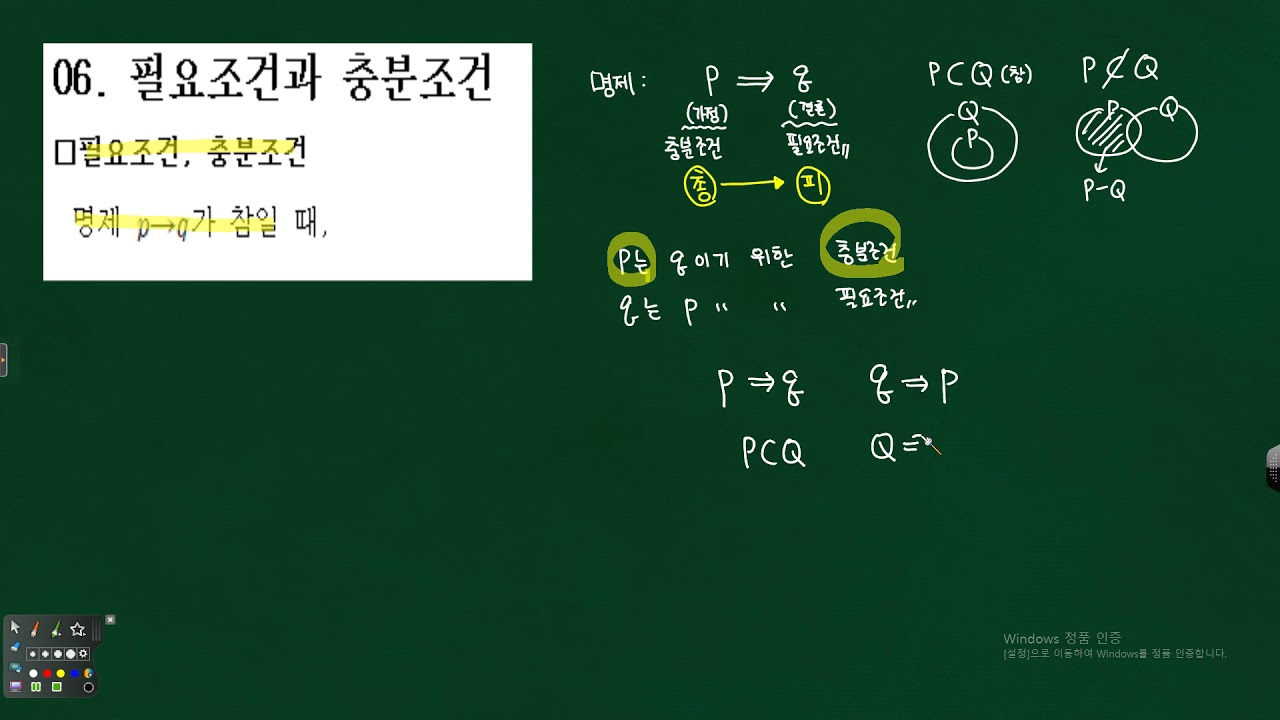 06. 필요조건과 충분조건
□필요조건, 충분조건
명제 p→q가 참일 때,
명제: p ⇒ q
(가정) (결론)
충분조건 필요조건〃
충 → 피
P는 q이기 위한 충분조건
q는 p 〃 〃 필요조건〃
P ⇒ q q ⇒ P
P⊂Q Q =
P⊂Q (참) P⊄Q
Q P P Q
P-Q
Windows 정품 인증
[설정]으로 이동하여 Windows를 정품 인증합니다.